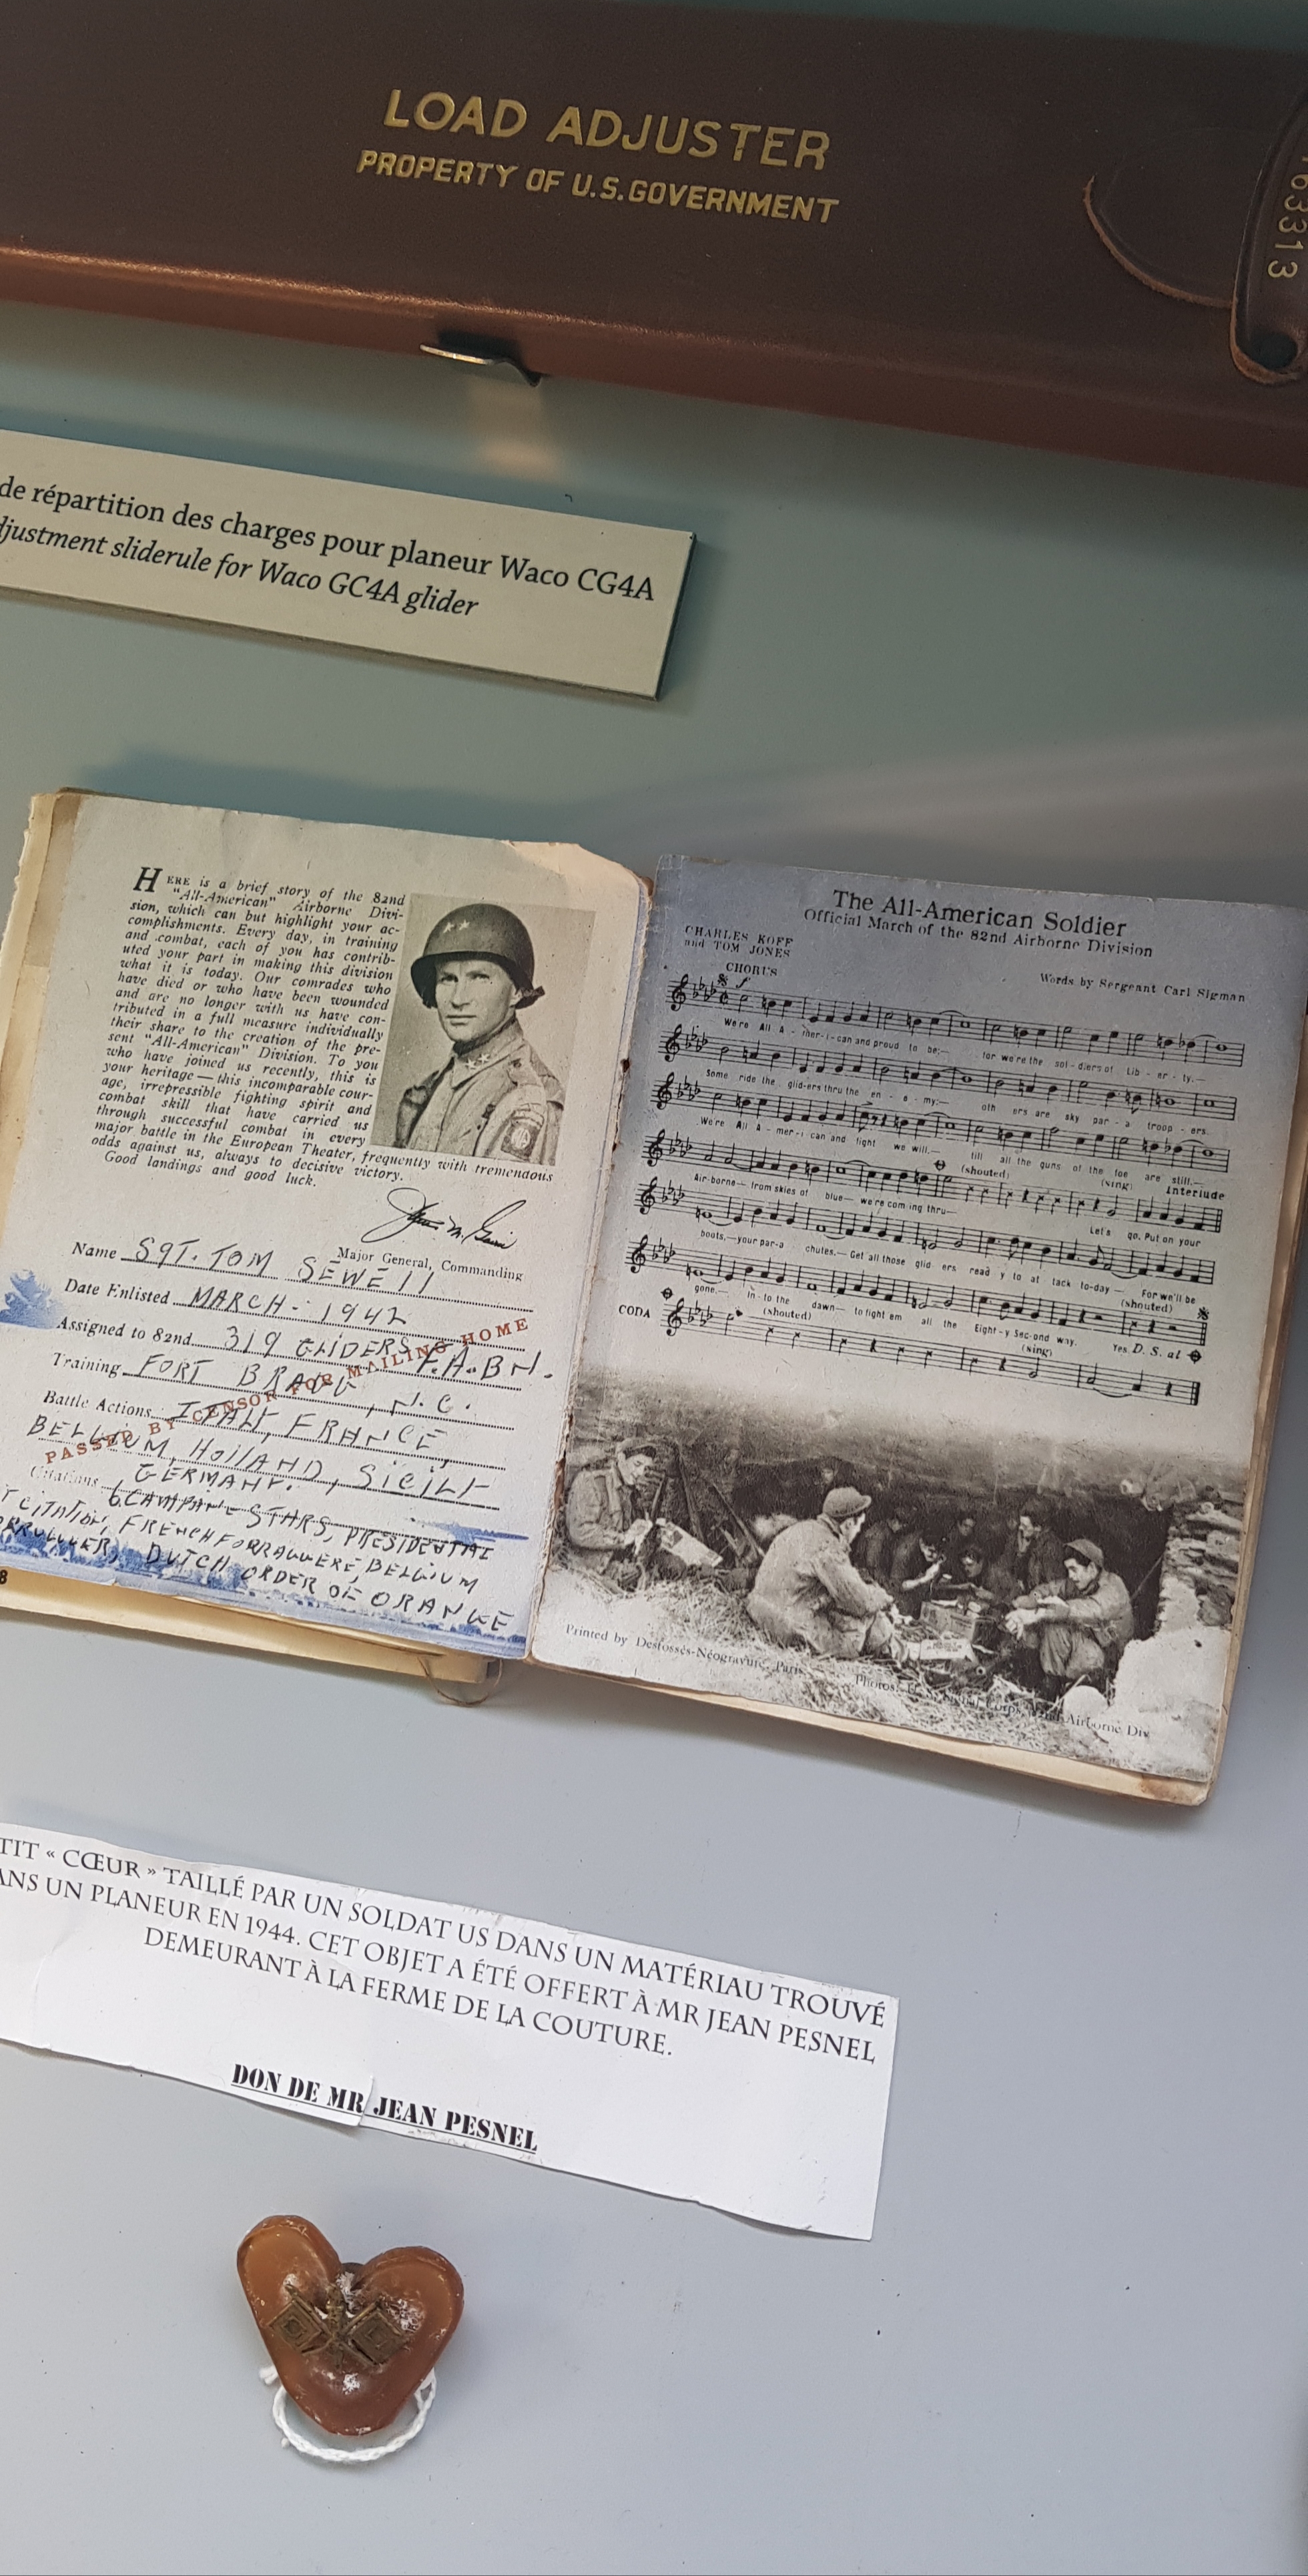 LOAD ADJUSTER
PROPERTY OF U.S. GOVERNMENT
63313
de répartition des charges pour planeur Waco CG4A
djustment sliderule for Waco GC4A glider
HERE is a brief story of the 82nd
"All-American" Airborne Divi-
sion, which can but highlight your ac-
complishments. Every day, in training
and combat, each of you has contrib-
uted your part in making this division
what it is today. Our comrades who
have died or who have been wounded
and are no longer with us have con-
tributed in a full measure individually
their share to the creation of the pre-
sent "All-American" Division. To you
who have joined us recently, this is
your heritage — this incomparable cour-
age, irrepressible fighting spirit and
combat skill that have carried us
through successful combat in every
major battle in the European Theater, frequently with tremendous
odds against us, always to decisive victory.
Good landings and good luck.
Major General, Commanding
Name SGT. TOM SEWELL
Date Enlisted MARCH - 1942
Assigned to 82nd 319 GLIDERS F.A. BN.
Training FORT BRAGG, N.C.
Battle Actions ITALY, FRANCE,
BELGIUM, HOLLAND, SICILY
GERMANY.
Citations 6 CAMPAINE STARS, PRESIDENTAL
T CITATION, FRENCH FORRAGUERE, BELGIUM
DUTCH ORDER OF ORANGE
PASSED BY CENSOR FOR MAILING HOME
8
The All-American Soldier
Official March of the 82nd Airborne Division
CHARLES KOFF
and TOM JONES
Words by Sergeant Carl Sigman
CHORUS
We're All A-mer-i-can and proud to be:— for we're the sol-diers of Lib-er-ty.—
Some ride the glid-ers thru the en-e-my:— oth ers are sky par-a troop-ers.
We're All A-mer-i can and fight we will.— till all the guns of the foe are still.—
(shouted) (sing) Interlude
Air-borne— from skies of blue— we're com ing thru— Let's go. Put on your
boots,— your par-a chutes.— Get all those glid ers read y to at tack to-day— For we'll be
gone.— In-to the dawn— to fight em all the Eight-y Sec-ond way. Yes. D. S. al
(shouted)
CODA (shouted) (sing)
Printed by Desfossés-Néogravure, Paris
Photos: Signal Corps, 82nd Airborne Div
TIT « CŒUR » TAILLÉ PAR UN SOLDAT US DANS UN MATÉRIAU TROUVÉ
ANS UN PLANEUR EN 1944. CET OBJET A ÉTÉ OFFERT À MR JEAN PESNEL
DEMEURANT À LA FERME DE LA COUTURE.
DON DE MR JEAN PESNEL